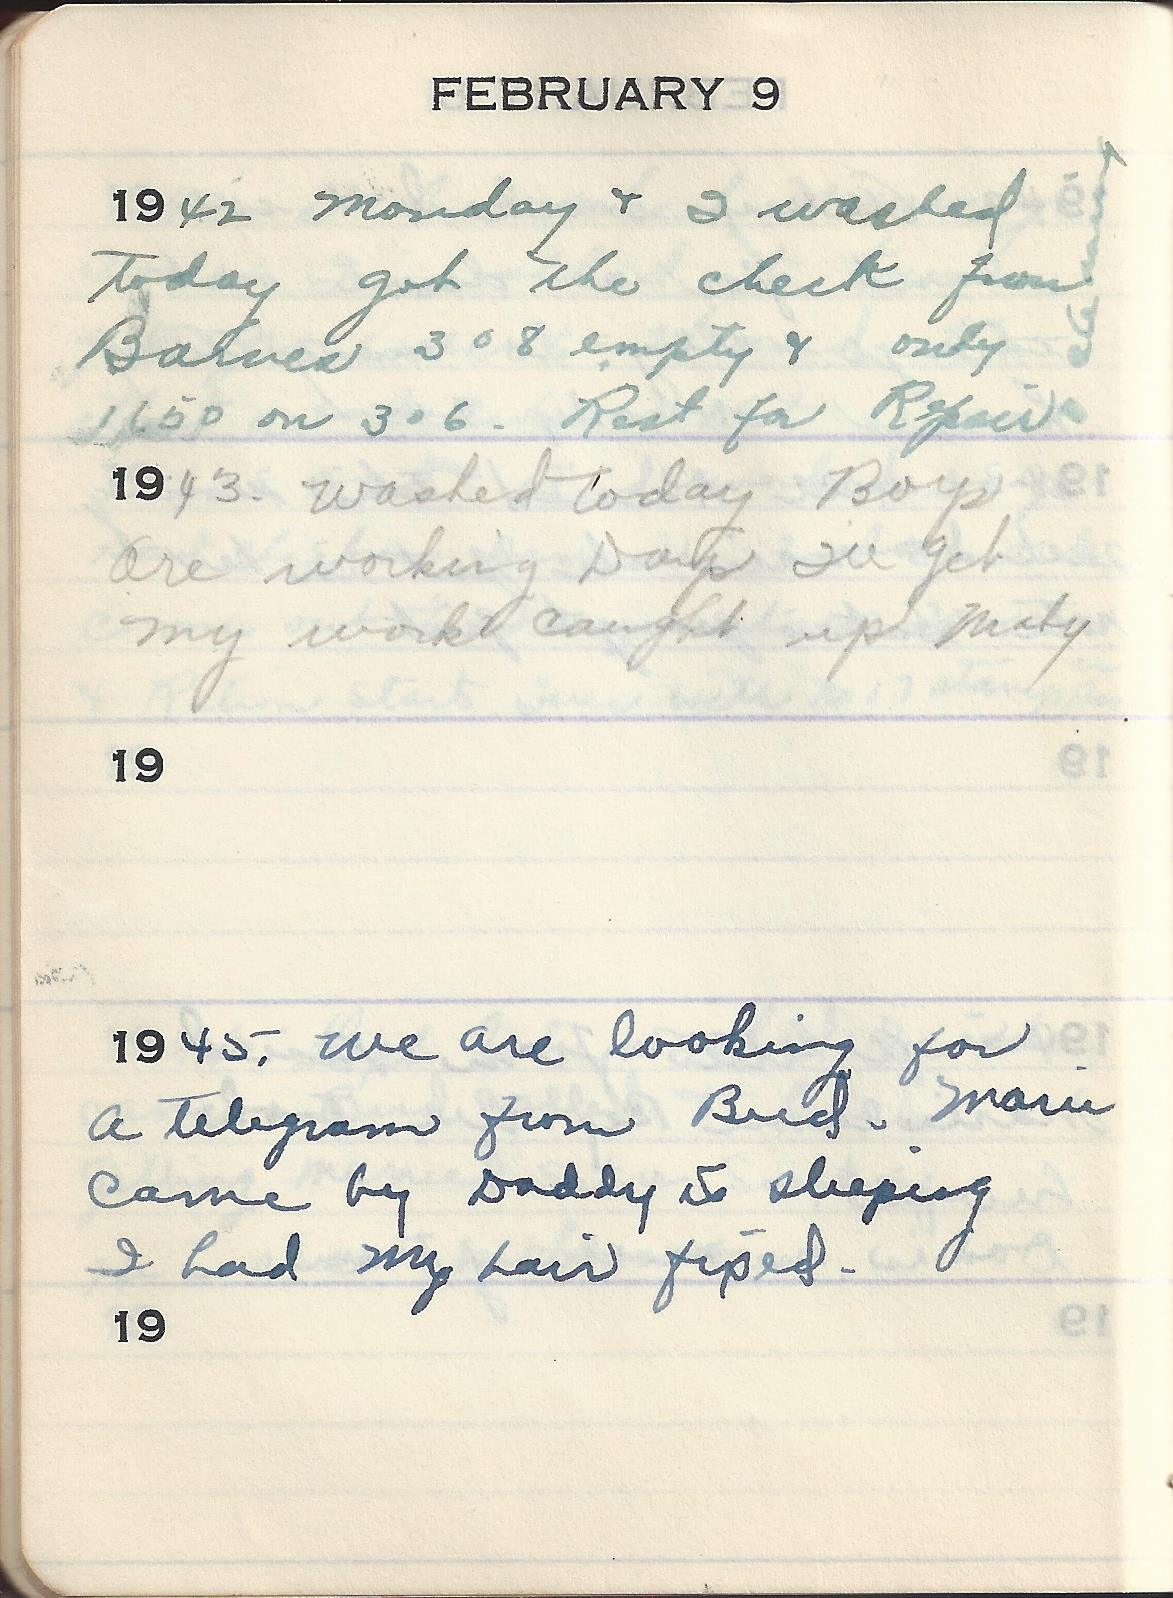 FEBRUARY 9
1942 Monday & I washed
today got the check from
Barnes 308 empty & only
1650 on 306. Rest for Repair
1943. Washed today Boys
are working Days I'll get
my work caught up Maby
19
1945. We are looking for
a telegram from Bud. Marie
came by Daddy is sleeping
I had my hair fixed.
19